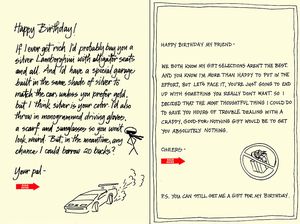 Happy Birthday!
If I ever get rich I'd probably buy you a
silver Lamborghini with alligator seats
and all. And I'd have a special garage
built in the same shade of silver to
match the car, unless you prefer gold,
but I think silver is your color. I'd also
throw in monogrammed driving gloves,
a scarf and sunglasses so you won't
look weird. But, in the meantime, any
chance I could borrow 20 bucks?
Your pal -
HAPPY BIRTHDAY MY FRIEND -
WE BOTH KNOW MY GIFT SELECTIONS AREN'T THE BEST.
AND YOU KNOW I'M MORE THAN HAPPY TO PUT IN THE
EFFORT, BUT LET'S FACE IT, YOU'RE JUST GOING TO END
UP WITH SOMETHING YOU REALLY DON'T WANT. SO I
DECIDED THAT THE MOST THOUGHTFUL THING I COULD DO
TO SAVE YOU HOURS OF TROUBLE DEALING WITH A
CRAPPY, GOOD-FOR-NOTHING GIFT WOULD BE TO GET
YOU ABSOLUTELY NOTHING.
CHEERS -
P.S. YOU CAN STILL GET ME A GIFT FOR MY BIRTHDAY.